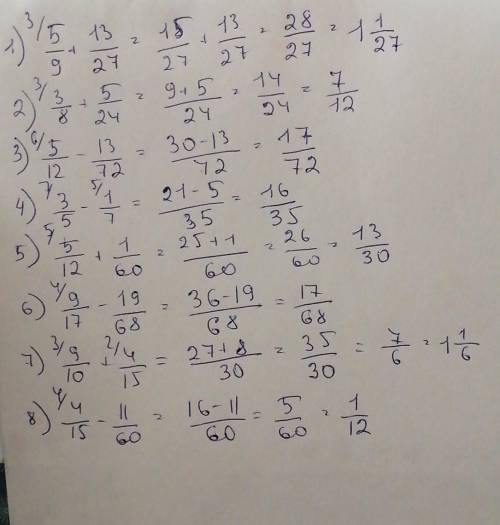 1) ³/ 5/9 + 13/27 = 15/27 + 13/27 = 28/27 = 1 1/27
2) ³/ 3/8 + 5/24 = 9+5/24 = 14/24 = 7/12
3) ⁶/ 5/12 - 13/72 = 30-13/72 = 17/72
4) ⁷/ 3/5 - ⁵/ 1/7 = 21-5/35 = 16/35
5) ⁵/ 5/12 + 1/60 = 25+1/60 = 26/60 = 13/30
6) ⁴/ 9/17 - 19/68 = 36-19/68 = 17/68
7) ³/ 9/10 + ²/ 4/15 = 27+8/30 = 35/30 = 7/6 = 1 1/6
8) ⁴/ 4/15 - 11/60 = 16-11/60 = 5/60 = 1/12